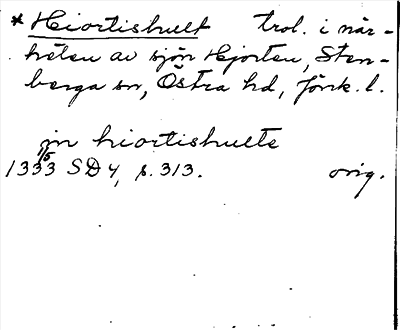 * Hiortishult trol. i när-
heten av sjön Hjorten, Sten-
berga sn, Östra hd, Jönk. l.
in hiortishulte
1/5
1333 SD 4, s. 313. orig.